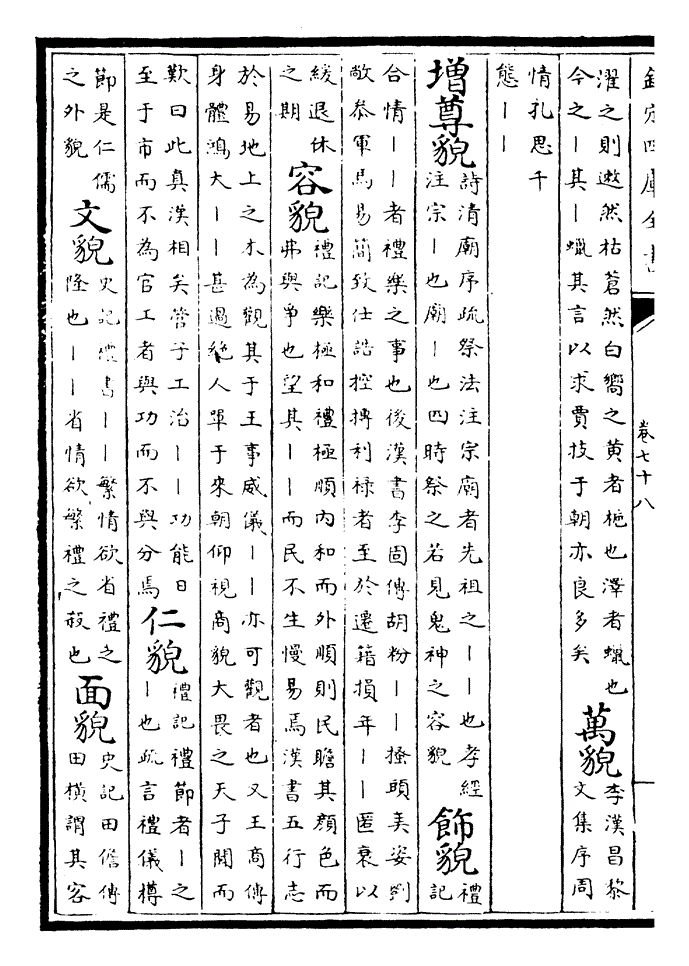 欽定四庫全書
卷七十八
濯之則遬然枯蒼然白嚮之黄者梔也澤者蠟也
今之丨其丨蠟其言以求賈技于朝亦良多矣
萬貌
李漢昌黎
文集序周
情孔思千
態丨丨
增尊貌
詩清廟序疏祭法注宗廟者先祖之丨丨也孝經
注宗丨也廟丨也四時祭之若見鬼神之容貌
飾貌
禮
記
合情丨丨者禮樂之事也後漢書李固傳胡粉丨丨搔頭美姿劉
敞恭軍馬易簡致仕誥控摶利祿者至於遷籍損年丨丨匿衰以
緩退休
之期
容貌
禮記樂極和禮極順内和而外順則民瞻其顔色而
弗與爭也望其丨丨而民不生慢易焉漢書五行志
於易地上之木為觀其于王事威儀丨丨亦可觀者也又王商傳
身體鴻大丨丨甚過絶人單于來朝仰視商貌大畏之天子聞而
歎曰此真漢相矣管子工治丨丨功能日
至于市而不為官工者與功而不與分焉
仁貌
禮記禮節者丨之
丨也疏言禮儀樽
節是仁儒
之外貌
文貌
史記禮書丨丨繁情欲省禮之
隆也丨丨省情欲繁禮之殺也
面貌
史記田儋傳
田横謂其容